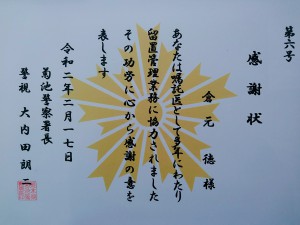 第六号
感謝状
倉元 徳 様
あなたは嘱託医として多年にわたり
留置管理業務に協力されました
その功労に心から感謝の意を
表します
令和二年二月一七日
菊池警察署長
警視 大内田朗二